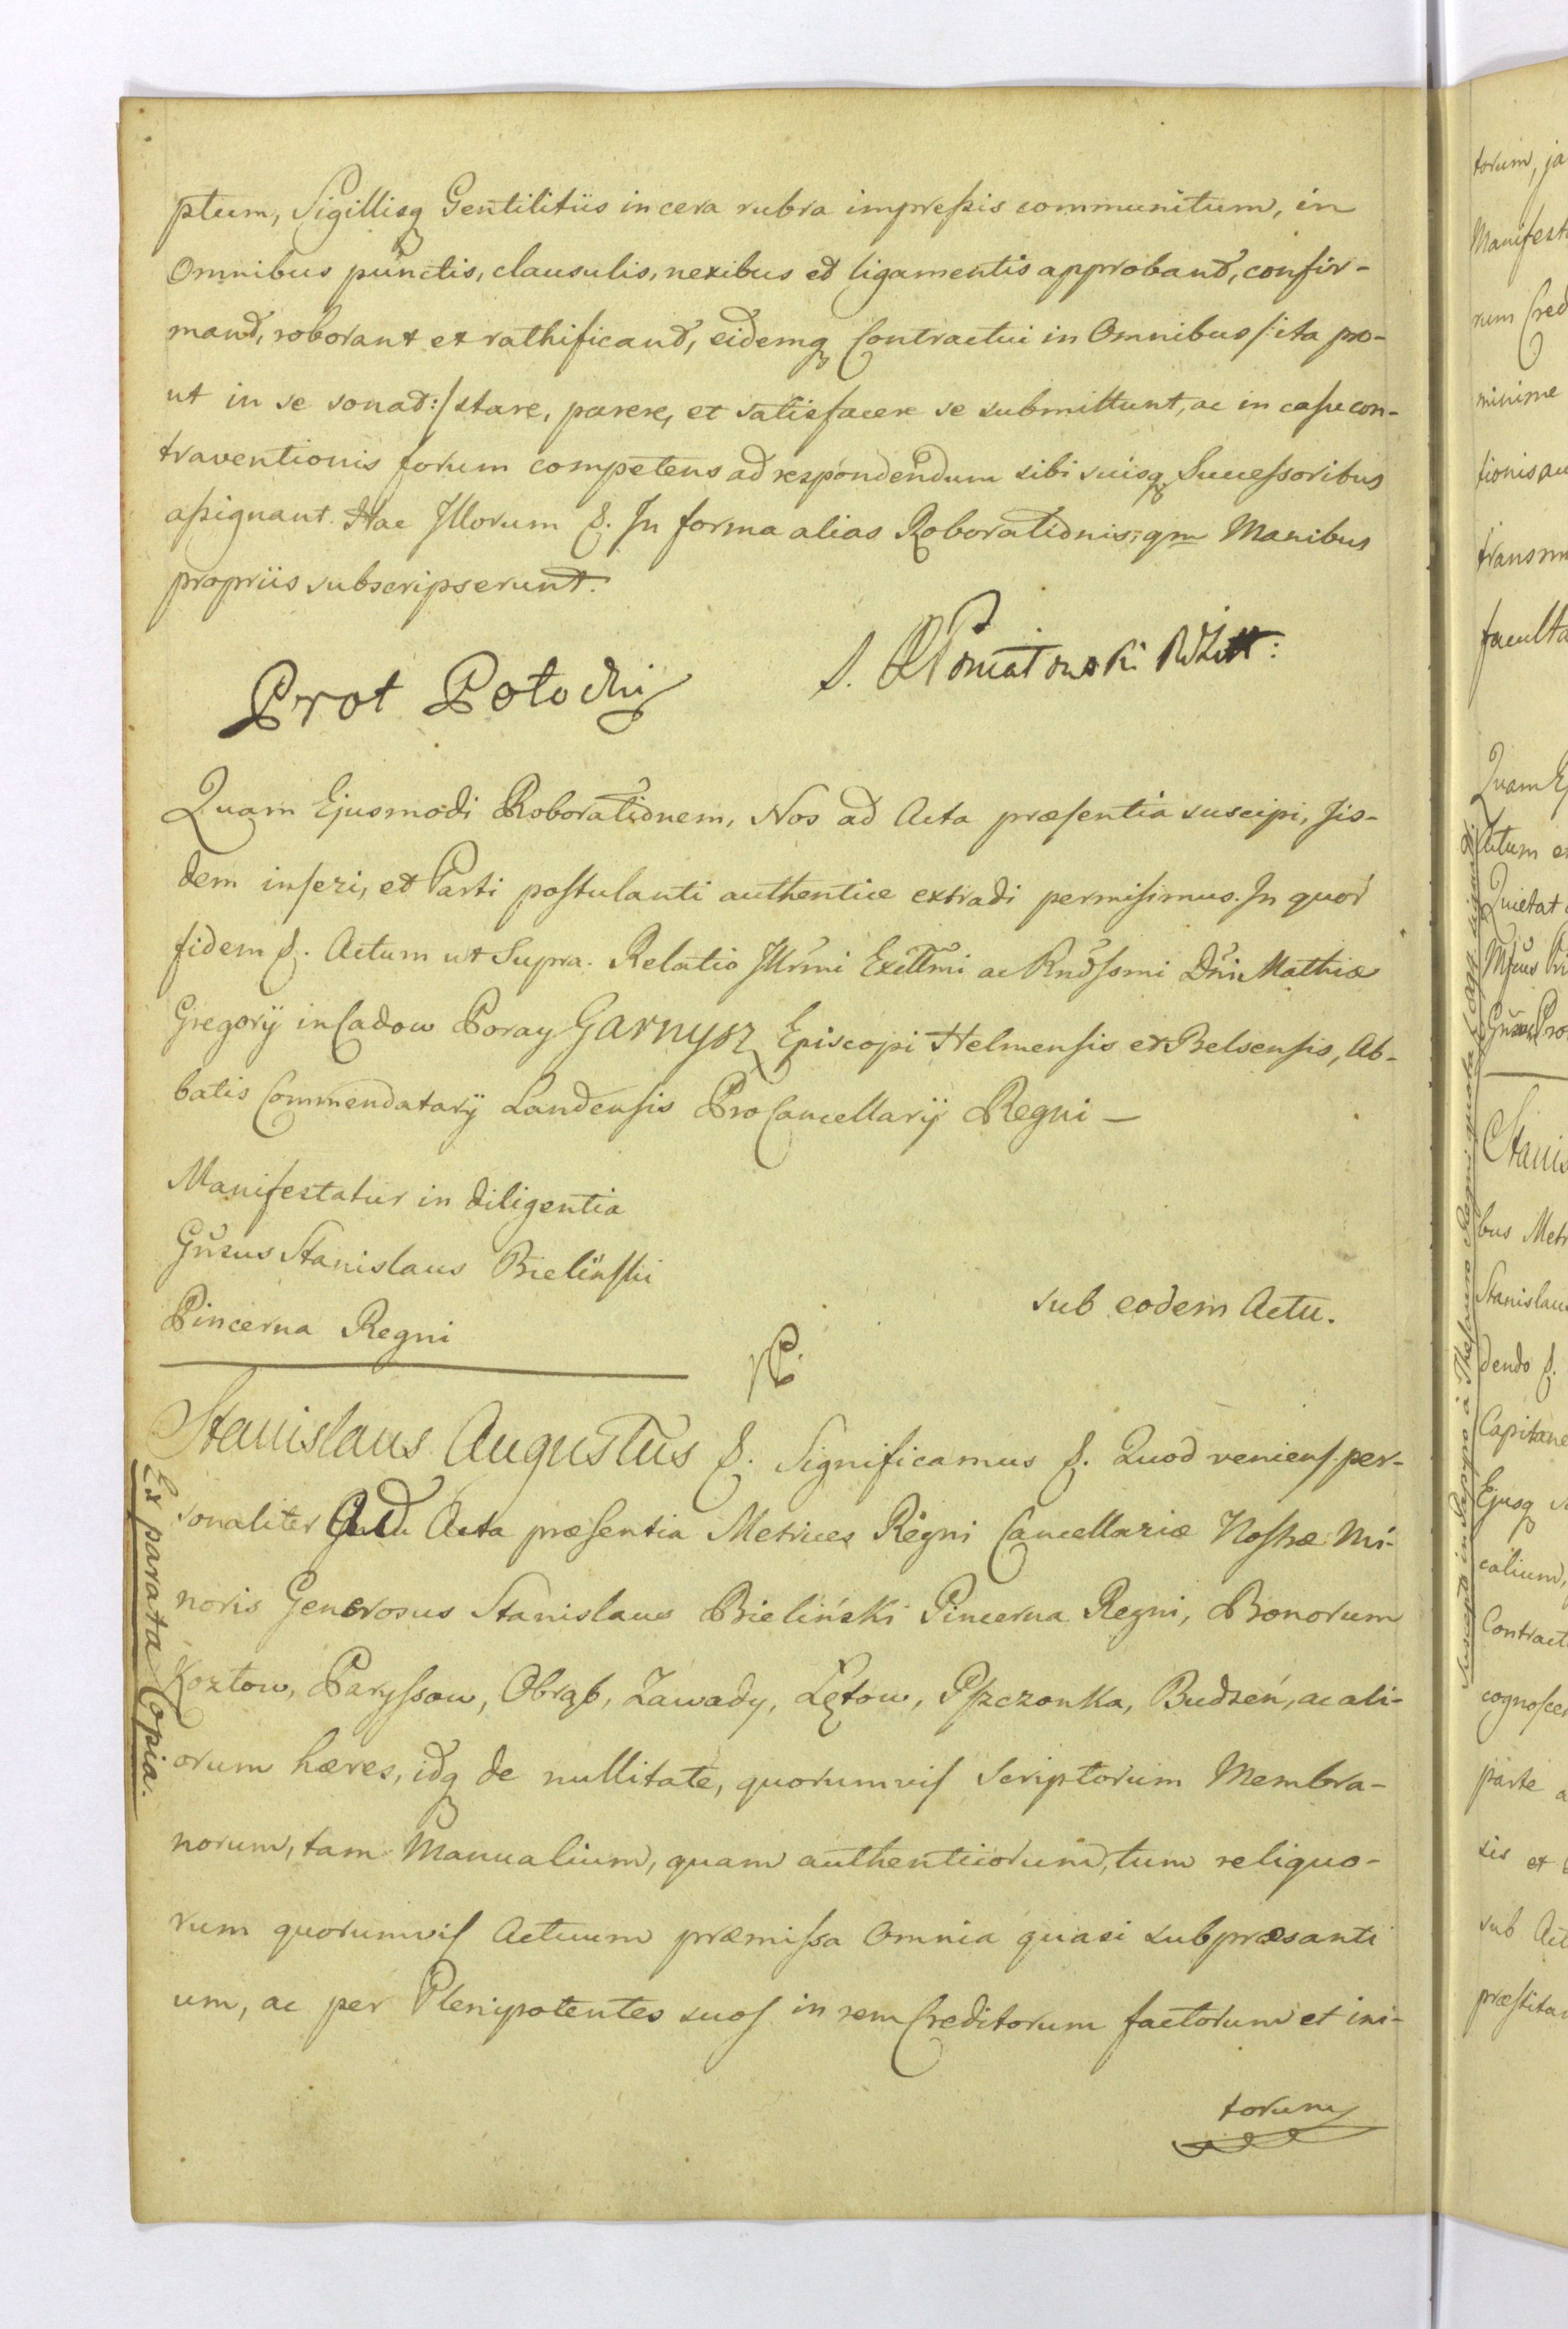 ptum, Sigillisq Gentilitiis in cera rubra impressis communitum, in
Omnibus punctis, clausulis, nexibus et ligamentis approbant, confir-
mant, roborant et rathificant, eidemq Contractui in Omnibus /: ita pro-
ut in se sonat :/ stare, parere, et satisfacere se submittunt, ac in casu con-
traventionis forum competens ad respondendum sibi suisq Successoribus
assignant. Hac Illorum &. In forma alias Roborationis, qm Manibus
propriis subscripserunt.
Prot Potocki
S. Poniatowski
Quam Ejusmodi Roborationem, Nos ad Acta præsentia suscipi, Iis-
dem inseri, et Parti postulanti authentice extradi permisimus. In quor
fidem &. Actum ut Supra. Relatio Illrmi Exctlmi ac Rndssmi Dni Mathiæ
Gregorij in Cadow Poray Garnysz Episcopi Helmensis et Belsensis, Ab-
batis Commendatarij Landensis ProCancellarij Regni —
Manifestatur in diligentia
Gnsus Stanislaus Bielinski
Pincerna Regni
sub eodem Actu.
Stanislaus Augustus &. Significamus &. Quod veniens per-
sonaliter Ad Acta præsentia Metrices Regni Cancellariæ Nostræ Mi-
noris Generosus Stanislaus Bieliński Pincerna Regni, Bonorum
Kozłow, Paryssow, Obrąb, Zawady, Łętow, Pszczonka, Budzeń, ac ali-
orum hæres, idq de nullitate, quorumvis Scriptorum Membra-
norum, tam Manualium, quam authenticorum, tum reliquo-
rum quorumvis Actuum præmissa Omnia quasi subpræsanti
um, ac per Plenipotentes suos in rem Creditorum factorum et ini-
torum
Ex parata Copia.
torum, ja
Manifest
rum Cred
minime
tionis au
transm
faculta
Quam Ej
titum e
Quietat
Stanis
bus Metr
Stanislau
dendo &.
Capitane
Ejusq
calium,
Contract
cognoscen
parte a
sis et
sub Act
præstita